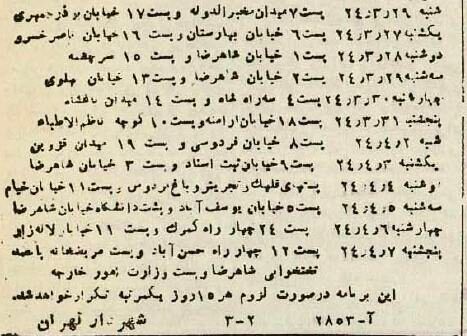 شنبه ۲۴٫۳٫۲۹ پست ۷ میدان مخبرالدوله و پست ۱۷ خیابان بوذرجمهری
یکشنبه ۲۴٫۳٫۲۷ پست ۶ خیابان بهارستان و پست ۱۶ خیابان ناصرخسرو
دوشنبه ۲۴٫۳٫۲۸ پست ۱ خیابان شاهرضا و پست ۱۵ سرچشمه
سه‌شنبه ۲۴٫۳٫۲۹ پست ۲ خیابان شاهرضا و پست ۱۳ خیابان پهلوی
چهارشنبه ۲۴٫۳٫۳۰ پست ۴ سه‌راه شاه و پست ۱۴ میدان باغشاه
پنجشنبه ۲۴٫۳٫۳۱ پست ۱۸ خیابان ارامنه و پست ۱۰ کوچه ناظم‌الاطباء
شنبه ۲۴٫۴٫۲ پست ۸ خیابان فردوسی و پست ۱۹ میدان قزوین
یکشنبه ۲۴٫۴٫۳ پست ۹ خیابان ثبت اسناد و پست ۳ خیابان شاهرضا
دوشنبه ۲۴٫۴٫۴ پستهای قلهک و تجریش و باغ فردوس و پست ۱۱ خیابان خیام
سه شنبه ۲۴٫۴٫۵ پست ۵ خیابان یوسف آباد و پشت دانشگاه خیابان شاهرضا
چهارشنبه ۲۴٫۴٫۶ پست ۲۴ چهار راه گمرک و پست ۱۱ خیابان لاله‌زار
پنجشنبه ۲۴٫۴٫۷ پست ۱۲ چهار راه حسن‌آباد و پست مریضخانه پانصد
تختخوابی شاهرضا و پست وزارت امور خارجه
این برنامه درصورت لزوم هر ۱۵ روز یکمرتبه تکرار خواهد شد
آ-۲۸۵۳ ۳-۲ شهردار تهران